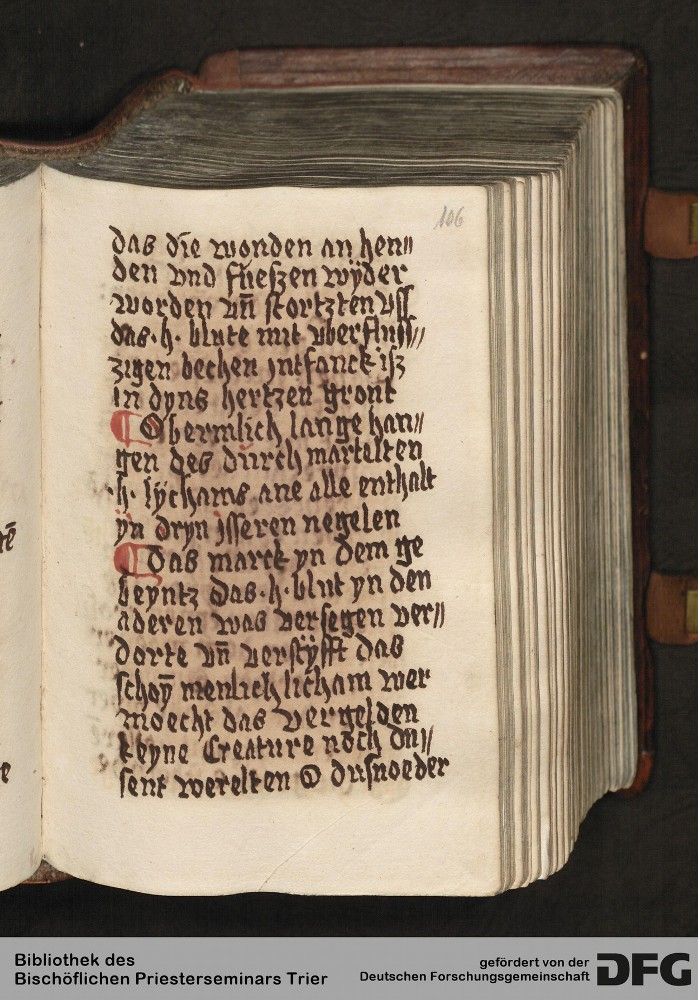 106
das die wonden an hen//
den vnd fueszen wÿder
worden vn̄ stortzten vss
das·h·blute mit vberfluss//
zigen bechen jntfanck isz
in dyns hertzen gront
¶ O bermlich lange han//
gen des durch martelten
·h·lÿchams ane alle enthalt
ÿn dryn jsseren negelen
¶ das marck yn dem ge
beyntz das·h·blut yn den
aderen was versegen ver//
dorte vn̄ verstÿfft das
schoȳ menlich licham wer
moecht das vergelden
keyne Creature noch du//
sent werelten O du snoeder
Bibliothek des
Bischöflichen Priesterseminars Trier
gefördert von der
Deutschen Forschungsgemeinschaft
DFG